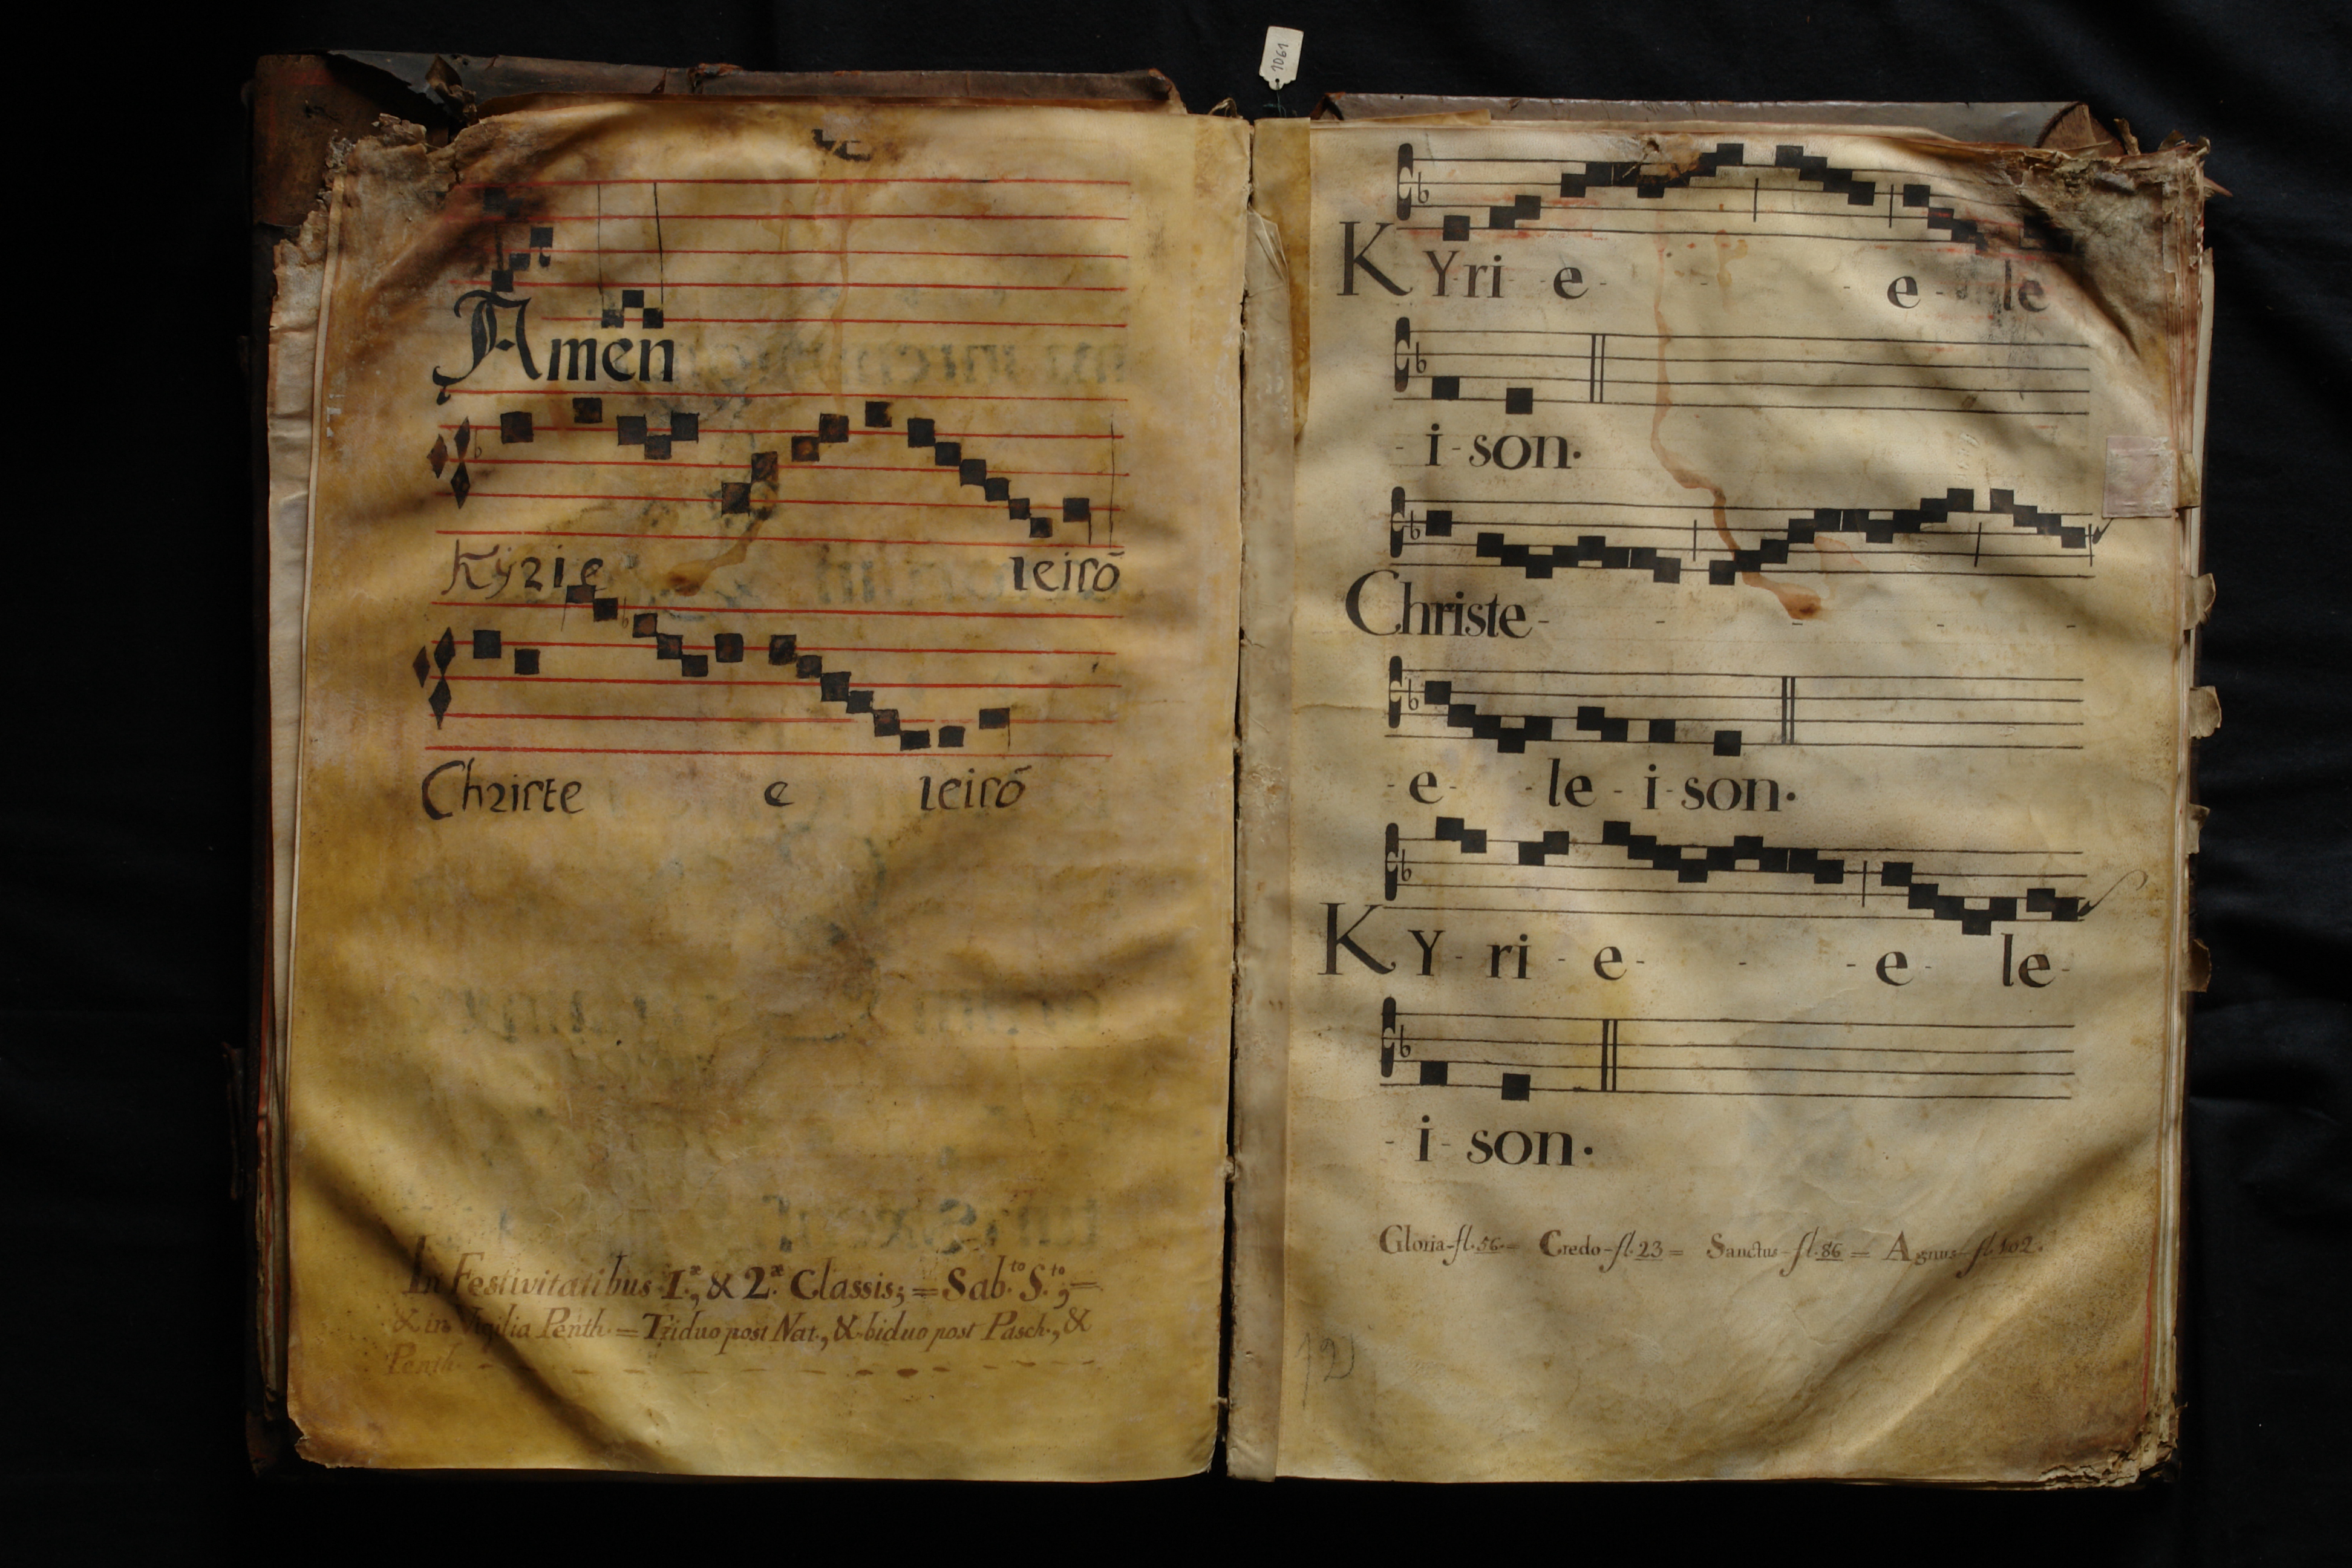 1061
Amen
Kyrie leisõ
Christe e leisõ
In Festivitatibus I.æ, & 2.æ Classis; = Sab.to S.to; =
& in Vigilia Penth. = Triduo post Nat., & biduo post Pasch., &
Penth.
KYri e - - - e - le
- i - son.
Christe - - - - -
- e - - le - i - son.
KY - ri - e - - - e - le -
- i - son.
Gloria - fl. 56 = Credo - fl. 23 = Sanctus - fl. 86 = Agnus - fl. 102.